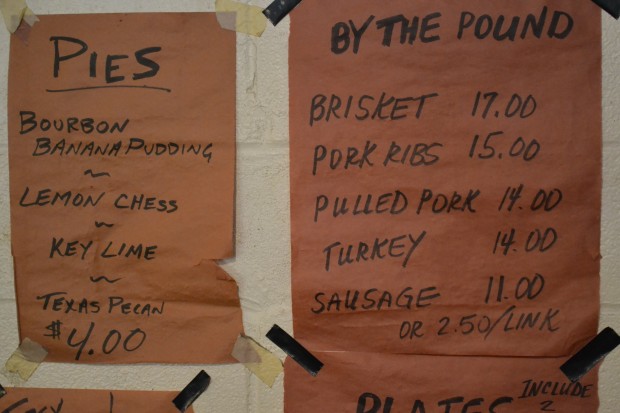 PIES
BOURBON
BANANA PUDDING
~
LEMON CHESS
~
KEY LIME
~
TEXAS PECAN
$4.00
BY THE POUND
BRISKET 17.00
PORK RIBS 15.00
PULLED PORK 14.00
TURKEY 14.00
SAUSAGE 11.00
OR 2.50/LINK
PLATES INCLUDE
2